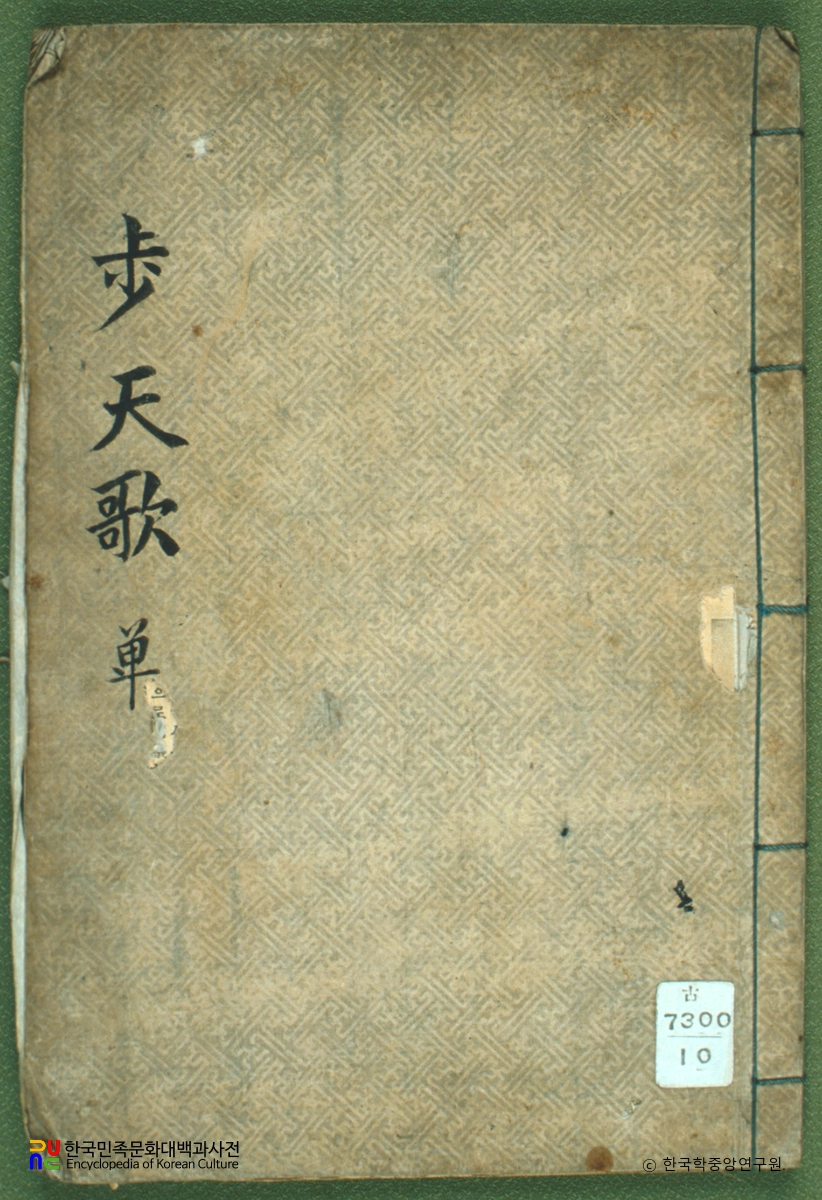 步天歌 単
古
7300
10
한국민족문화대백과사전
Encyclopedia of Korean Culture
© 한국학중앙연구원